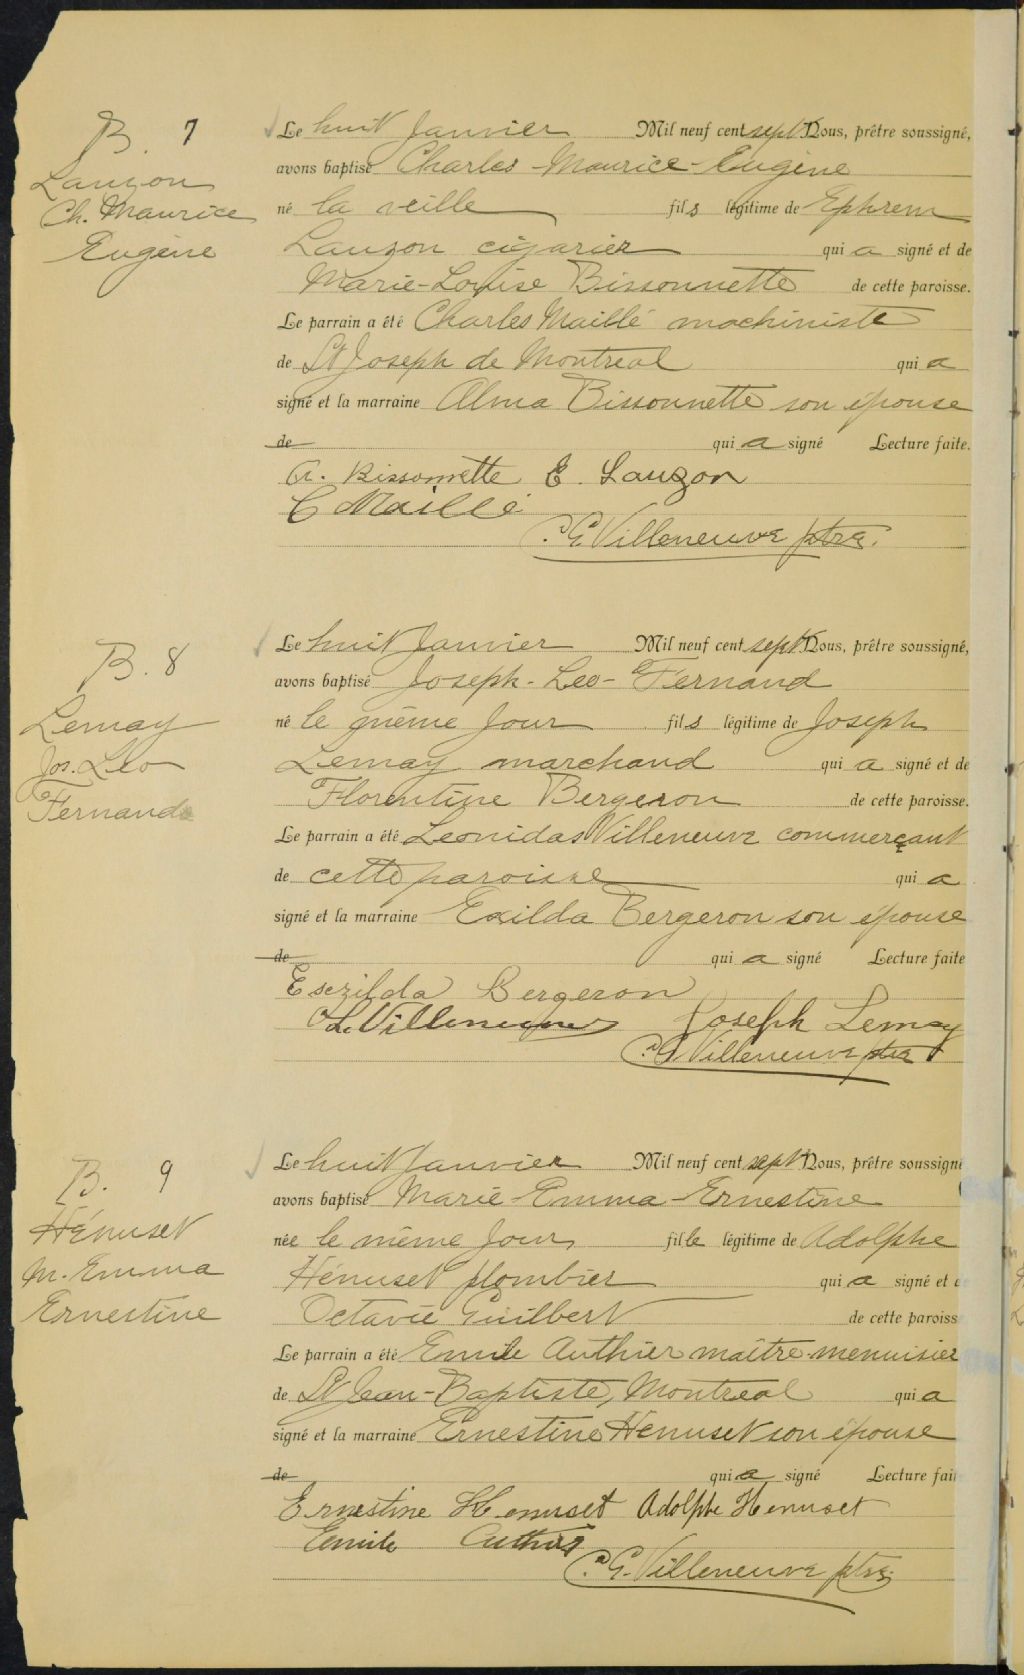 B. 7
Lauzon
Ch. Maurice
Eugène
Le huit Janvier Mil neuf cent sept Nous, prêtre soussigné,
avons baptisé Charles-Maurice-Eugène
né la veille fils légitime de Ephrem
Lauzon cigarier qui a signé et de
Marie-Louise Bissonnette de cette paroisse.
Le parrain a été Charles Maillé machiniste
de St Joseph de Montreal qui a
signé et la marraine Alma Bissonnette son épouse
de qui a signé Lecture faite.
A. Bissonnette E. Lauzon
C Maillé
C. G. Villeneuve ptre.
B. 8
Lemay
Jos. Léo
Fernand
Le huit Janvier Mil neuf cent sept Nous, prêtre soussigné,
avons baptisé Joseph-Leo-Fernand
né le même jour fils légitime de Joseph
Lemay marchand qui a signé et de
Florentine Bergeron de cette paroisse.
Le parrain a été Leonidas Villeneuve commerçant
de cette paroisse qui a
signé et la marraine Exilda Bergeron son épouse
de qui a signé Lecture faite
Esezilda Bergeron
L. Villeneuve Joseph Lemay
C. G. Villeneuve ptre
B. 9
Hénuset
M. Emma
Ernestine
Le huit Janvier Mil neuf cent sept Nous, prêtre soussigné
avons baptisé Marie-Emma-Ernestine
née le même jour fille légitime de Adolphe
Hénuset plombier qui a signé et de
Octavie Guilbert de cette paroiss
Le parrain a été Emile Authier maître-menuisier
de St Jean-Baptiste, Montreal qui a
signé et la marraine Ernestine Hénuset son épouse
de qui a signé Lecture fai
Ernestine Henuset Adolphe Henuset
Emile Authier
C. G. Villeneuve ptre.